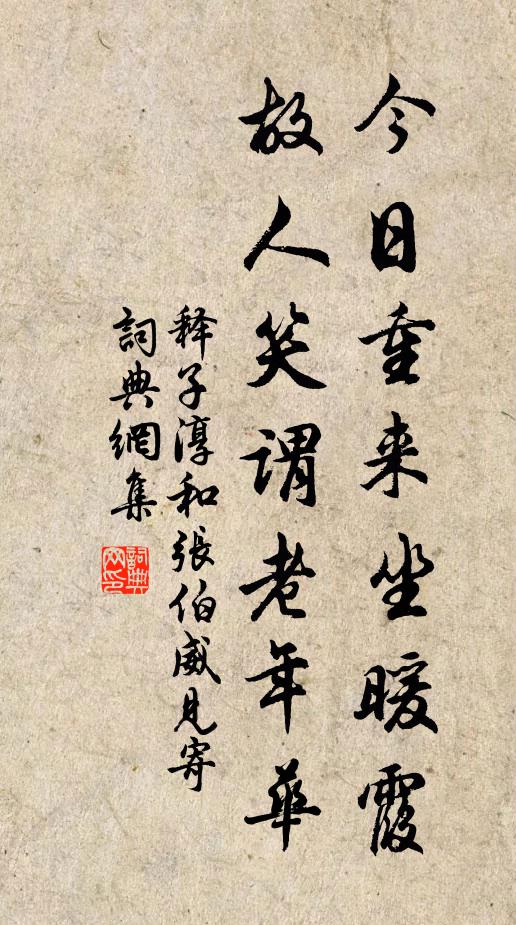 今日重来坐暖霞
故人笑谓老年華
释子淳和張伯威見寄
詞典網集
詞典網印